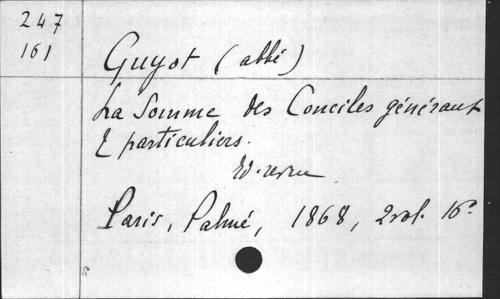 247
161
Guyot (abbé)
La Somme des Conciles généraux
& particuliers.
Ed. revue
Paris, Palmé, 1868, 2 vol. 16°.